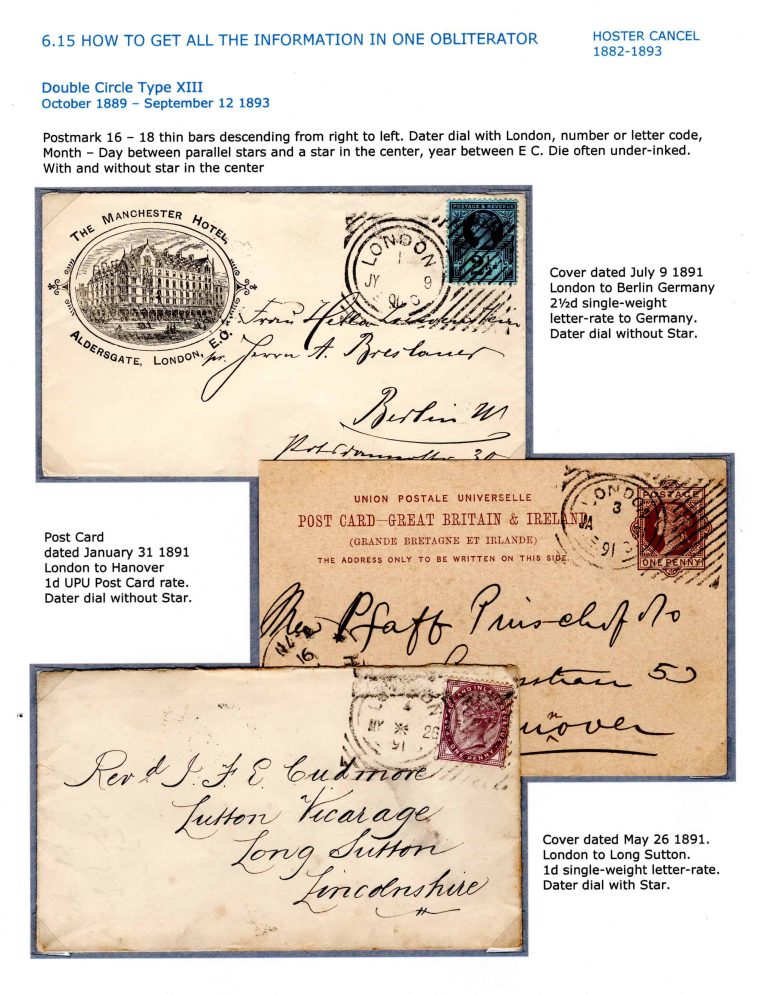 6.15 HOW TO GET ALL THE INFORMATION IN ONE OBLITERATOR
HOSTER CANCEL
1882-1893
Double Circle Type XIII
October 1889 – September 12 1893
Postmark 16 – 18 thin bars descending from right to left. Dater dial with London, number or letter code,
Month – Day between parallel stars and a star in the center, year between E C. Die often under-inked.
With and without star in the center
THE MANCHESTER HOTEL,
ALDERSGATE, LONDON, E.C.
LONDON
1
JY 9
POSTAGE & REVENUE
Frau
pr. Herrn A. Breslauer
Berlin W
Cover dated July 9 1891
London to Berlin Germany
2½d single-weight
letter-rate to Germany.
Dater dial without Star.
Post Card
dated January 31 1891
London to Hanover
1d UPU Post Card rate.
Dater dial without Star.
UNION POSTALE UNIVERSELLE
POST CARD—GREAT BRITAIN & IRELAND
(GRANDE BRETAGNE ET IRLANDE)
THE ADDRESS ONLY TO BE WRITTEN ON THIS SIDE.
LONDON
3
JA
91
POSTAGE
ONE PENNY
Pfaff
16
LONDON
4
MY 26
91
Revd J. F. E. Cudmore
Lutton Vicarage
Long Sutton
Lincolnshire
Cover dated May 26 1891.
London to Long Sutton.
1d single-weight letter-rate.
Dater dial with Star.